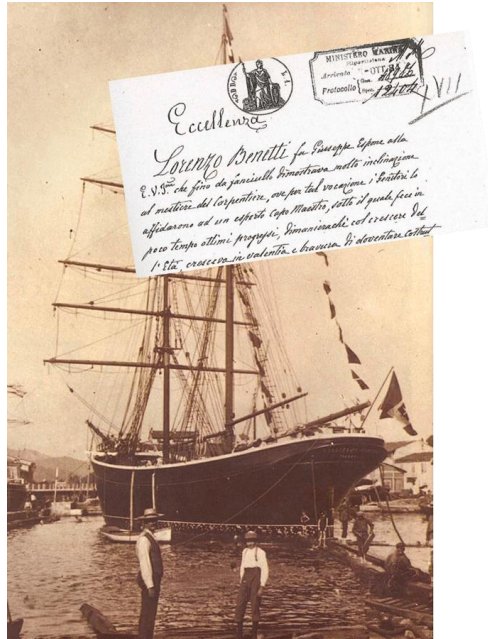 MINISTERO MARINA
Arrivato OTT. 84
Protocollo
12404
XVII
Eccellenza
Lorenzo Benetti fu Giuseppe Espone alla
E. V. Ill.ma che fino da fanciullo dimostrava molta inclinazione
al mestiere del Carpentiere, ove per tal vocazione i Genitori lo
affidarono ad un esperto Capo Maestro, sotto il quale fece in
poco tempo ottimi progressi, dimanierachè col crescere del
l'Età cresceva in valentia e bravura di doventare